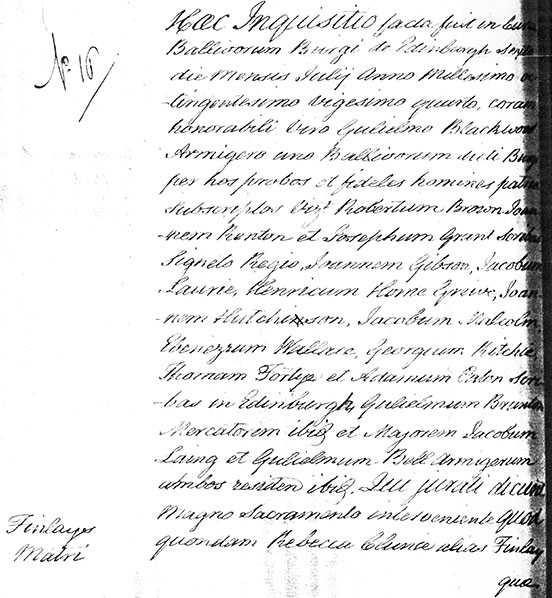 No. 16
Haec Inquisitio facta fuit in Curia
Ballivorum Burgi de Edinburgh sexto
die Mensis Julij Anno Millesimo oc
tingentesimo vigesimo quarto, coram
honorabili Viro Gulielmo Blackwood
Armigero uno Ballivorum dicti Burgi
per hos probos et fideles homines patriae
subscriptos Vizt Robertum Brown Joan
-nem Renton et Josephum Grant Scribas
Signeto Regio, Joannem Gibson, Jacobum
Laurie, Henricum Home Joan
-nem Hutchinson, Jacobum Malcolm,
Ebenezrum Wallace, Georgium Ritchie,
Thomam et Adamum Scri
-bas in Edinburgh, Gulielmum Brunton
Mercatorem ibid et Majorem Jacobum
Laing et Gulielmum Bell Armigerum
ambos residen ibid. Qui jurati dicunt
Magno Sacramento interveniente quod
quondam Rebecca Clunie alias Finlay
quae
Finlays
Matri